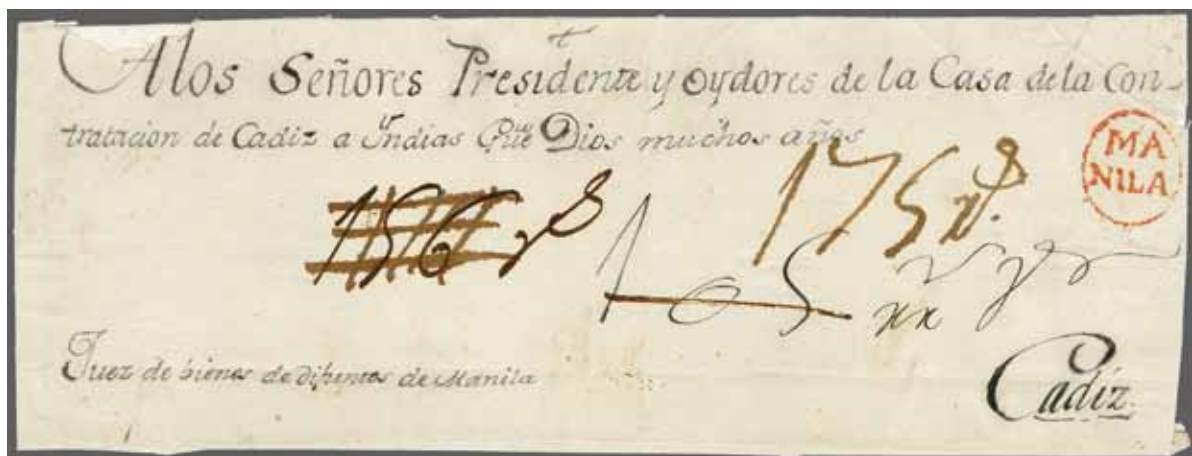 A los Señores Presidente y oydores de la Casa de la Con-
tratacion de Cadiz a Yndias Gue Dios muchos años
MA
NILA
156 rs
175 rs
105
Juez de bienes de difuntos de Manila
Cadiz